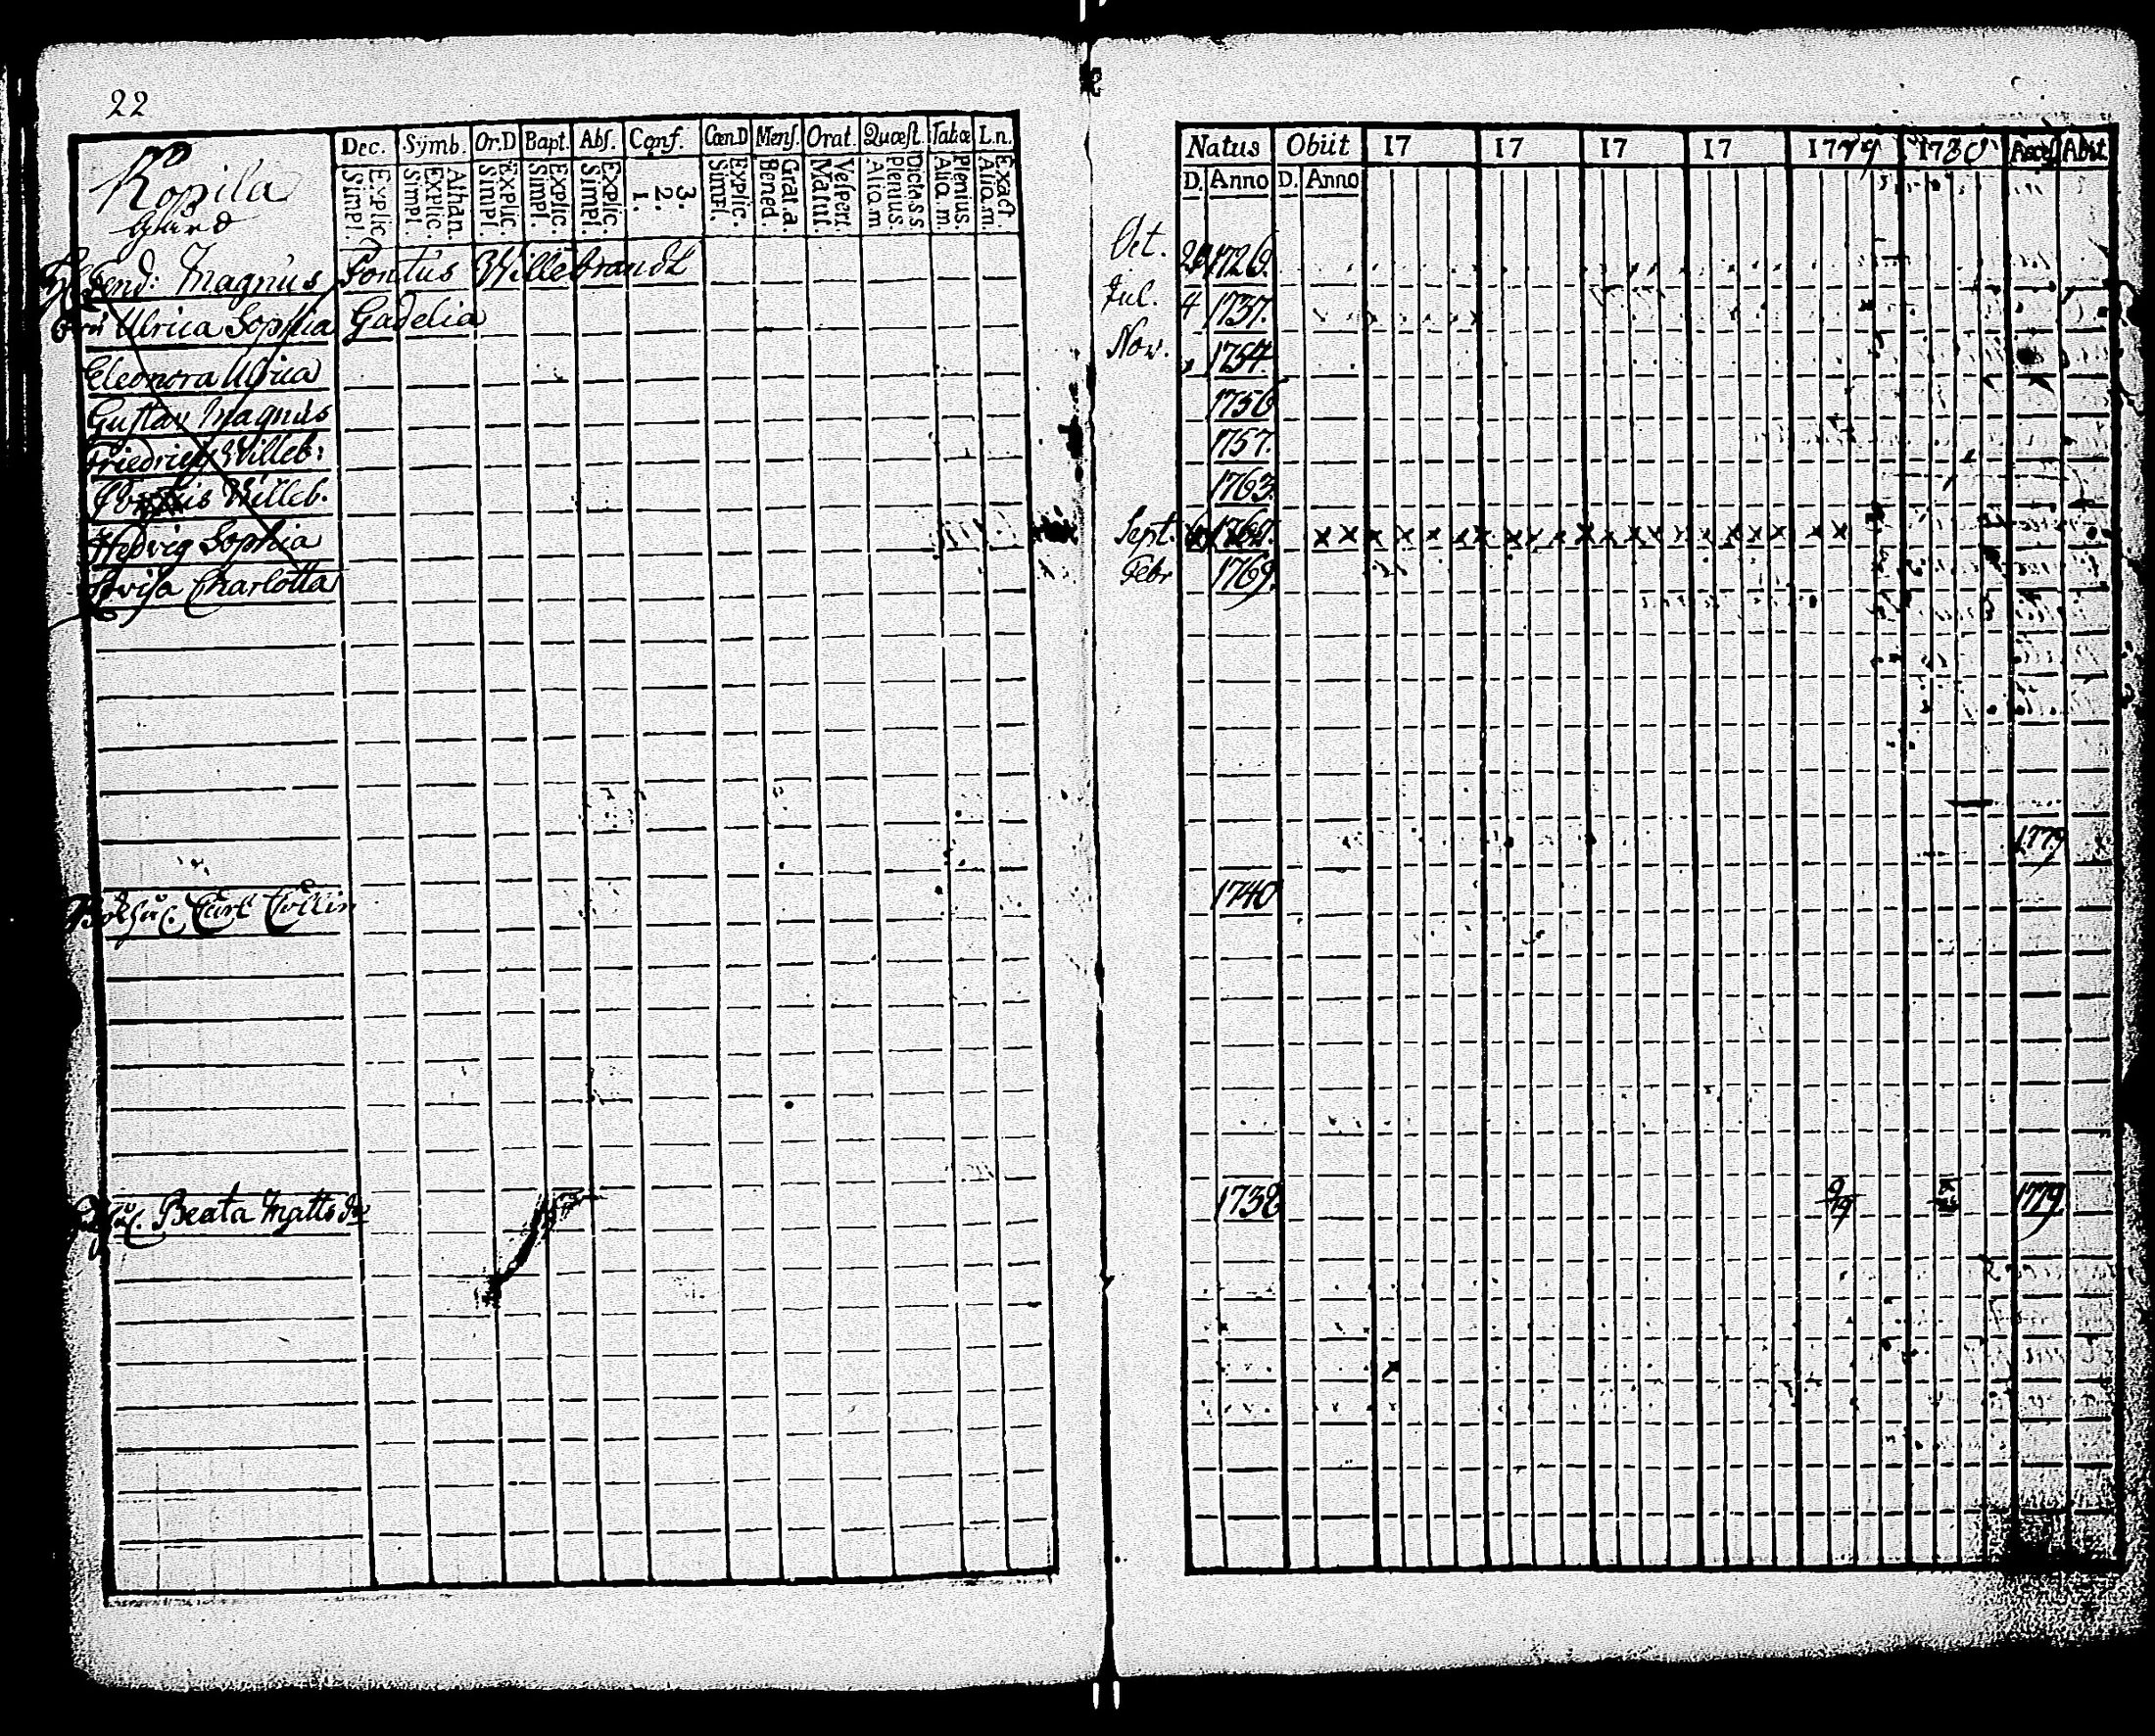 22
Dec. Symb. Or.D Bapt. Abs. Conf. Cœn.D Mens. Orat. Quæst. Tabæ L.n.
Simpl. Explic. Simpl. Explic. Athan. Simpl. Explic. Simpl. Explic. Simpl. Explic. 1. 2. 3. Simpl. Explic. Bened. Grat.a. Matut. Vespert. Aliq.m Plenius. Dicta.s.s Aliq.m. Plenius. Aliq.m. Exact
Kopila
Gård
Magnus Pontus Willebrandt
Ulrica Sophia Gadelia
Eleonora Ulrica
Gustav Magnus
Friedrich Willeb:
Pontus Willeb.
Hedvig Sophia
Lovisa Charlotta
Carl Collin
Beata Matts dr
Natus Obiit 17 17 17 17 1779 1780 Access Abit
D. Anno D. Anno
Oct. 1726.
Jul. 4 1737.
Nov. 1754.
1756
1757.
1763.
Sept. 1764. x x x x x x x x x x x x x x x x x x x x
Febr 1769.
1779
1740
1738 1779